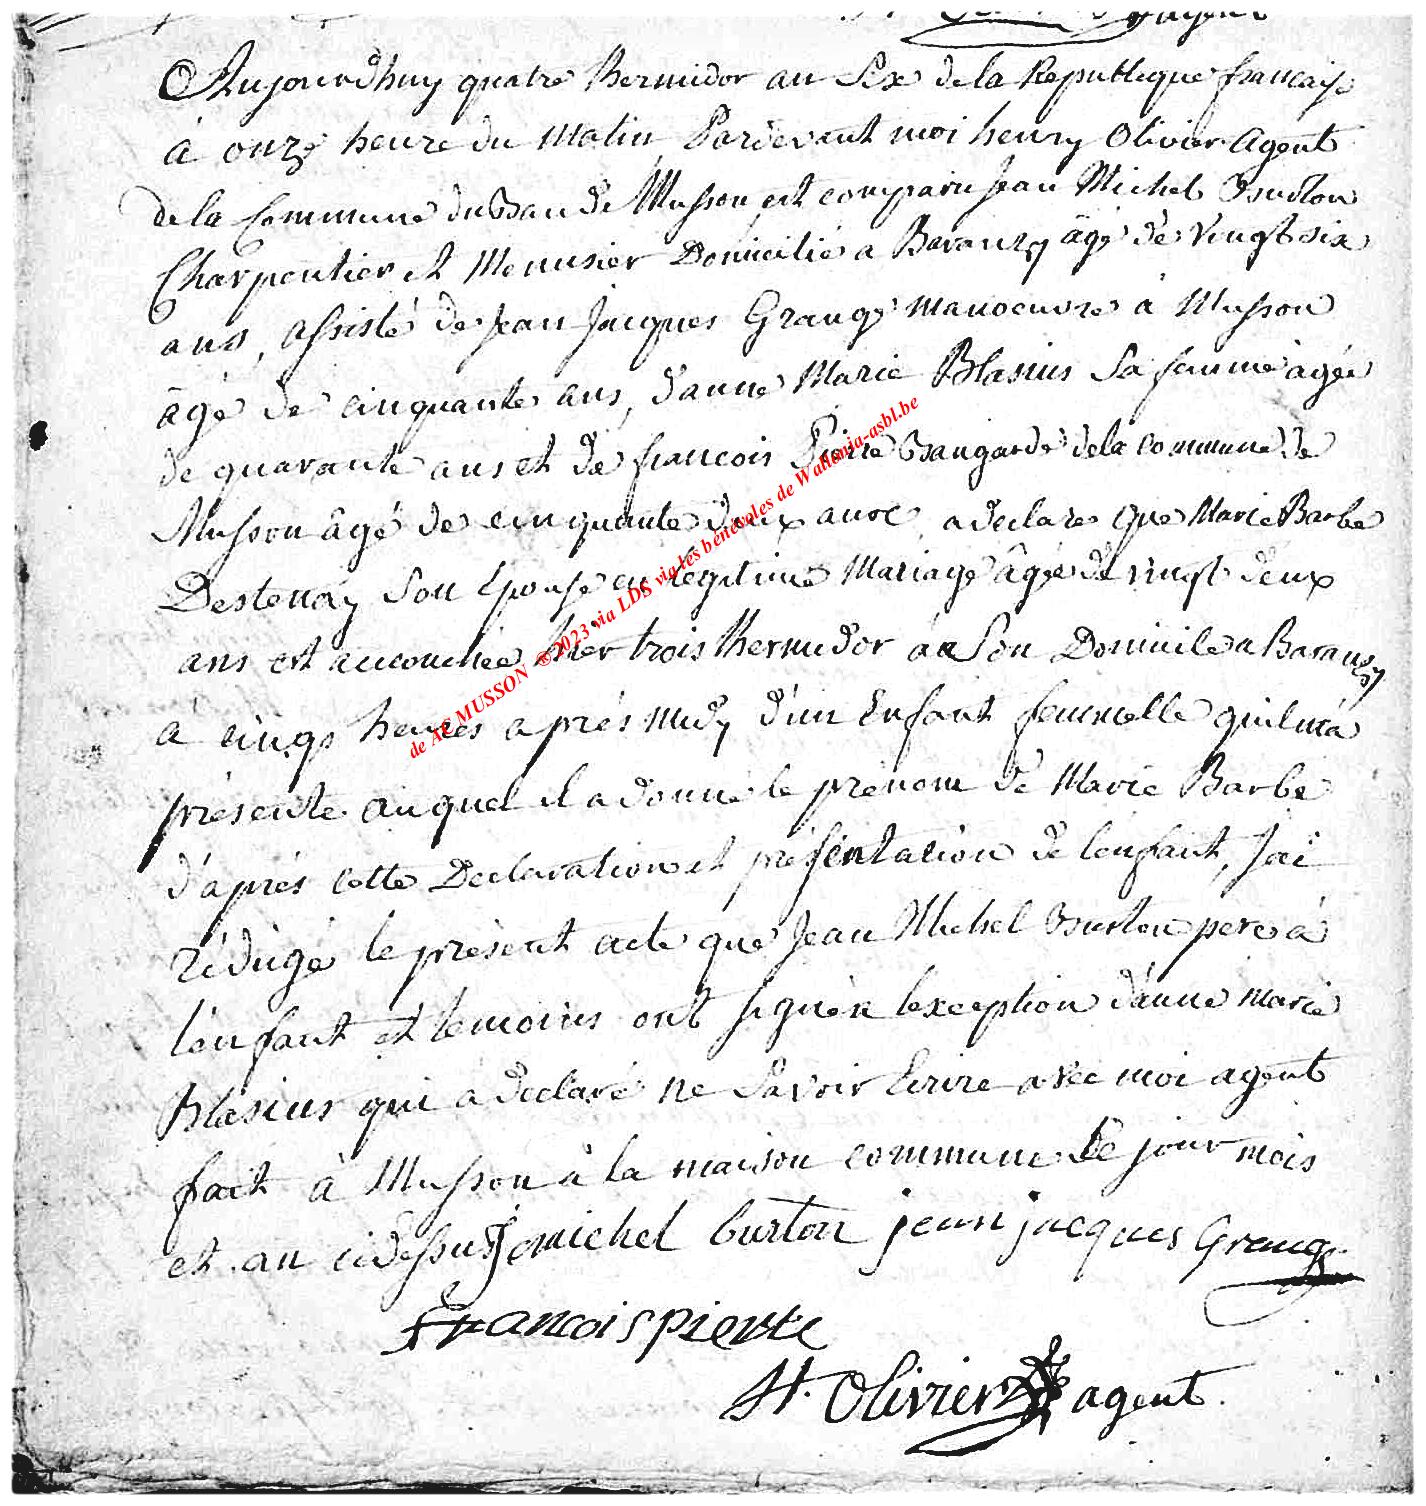 agent
Aujourdhuy quatre thermidor an Six de la Republique francaise
à onze heure du Matin Pardevant moi henry Olivier Agent
de la Commune du Ban de Musson est comparu Jean Michel Burton
Charpentier et Menusier Domicilié a Baranzy âgé de Vingt six
ans, assisté de Jean Jacques Grange manoeuvre à Musson
âgé de cinquante ans, d'anne Marie Blasius Sa femme âgée
de quarante ans et de francois Pierre Bangarde de la commune de
Musson âgé de cinquante deux ans a declare que Marie Barbe
Destenay Son Epouse en legitime Mariage âgée de vingt deux
ans est accouchée hier trois thermidor à Son Domicile a Baranzy
à cinqs heures après Midy d'un Enfant femmelle qu'il m'a
présenté auquel il a donné le prénom de Marie Barbe
d'après cette Declaration et présentation de l'enfant, J'ai
rédigé le présent acte que Jean Michel Burton pere à
l'enfant et temoins ont signé à l'exception d'anne Marie
Blasius qui a declaré ne Savoir Ecrire avec moi agent
fait à Musson à la maison commune le jour mois
et an cidessus J michel burton jean jacques Grange
francois pierre
H. Olivier agent
de AE MUSSON ©2023 via LDS via les bénévoles de Wallonia-asbl.be